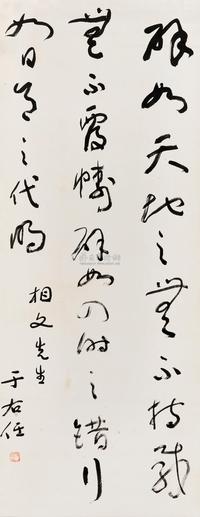 辟如天地之無不持載
無不覆幬辟如四時之錯行
如日月之代明
相文先生
于右任